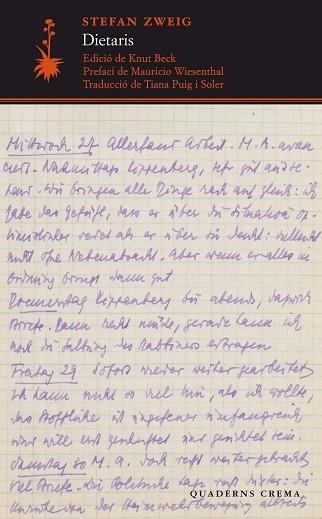 STEFAN ZWEIG
Dietaris
Edició de Knut Beck
Prefaci de Mauricio Wiesenthal
Traducció de Tiana Puig i Soler
Mittwoch 27 Allerhand Arbeit. M. A.
Nachmittags Kippenberg, sehr gut
Wir bringen alle Dinge rasch auf gleich: ich
habe das Gefühl, dass er über die Situation
als er über sie denkt: vielleicht
nicht ohne Nebenabsicht. Aber wenn er alles in
Ordnung bringt dann gut
Donnerstag Kippenberg bis abends, dazwischen
Briefe. Dann recht müde, gerade kann ich
noch die des Rabbiners ertragen
Freitag 29 Sofort wieder weitergearbeitet
Ich kann nicht so viel tun, als ich wollte,
das Stoffliche ist ungeheuer umfangreich
und will erst und gesichtet sein.
Samstag 30 M. A. doch rasch weitergebracht
viel Briefe. Die Politische Lage düster: die
QUADERNS CREMA